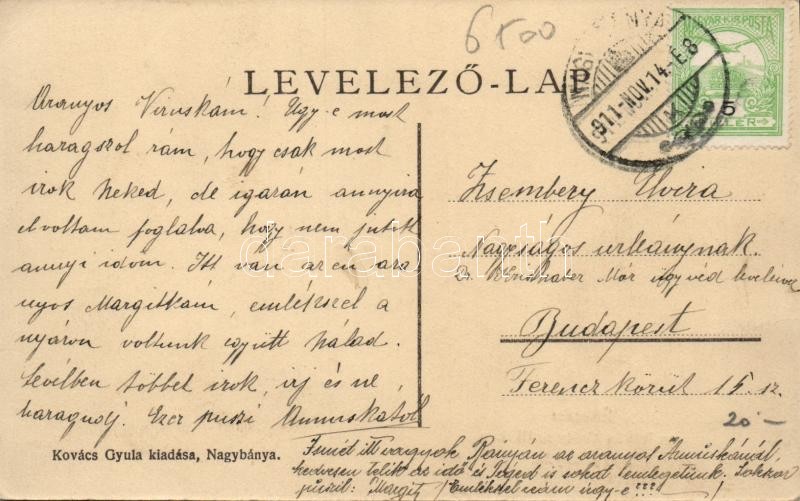 6500
LEVELEZŐ-LAP
MAGYAR KIR. POSTA
5
911-NOV.14.-E8
Aranyos Viruskám! Úgy-e most
haragszol rám, hogy csak most
írok Neked, de igazán annyira
elvoltam foglalva, hogy nem jutott
annyi időm. Itt van az én ara
nyos Margitkám, emlékszel a
nyáron voltunk együtt nálad.
Levélben többet írok, írj és ne
haragudj. Ezer puszi Annuskától
Zsembery Elvira
Nagyságos urleánynak.
Dr. Mór ügyvéd
Budapest
Ferencz körút 15. sz.
20 -
Kovács Gyula kiadása, Nagybánya.
itt vagyok Bányán az aranyos Annuskánál,
kedvesen telik az idő és Téged is sokat emlegetünk. Sokszor
Margit Emlékszel reám úgy-e???!
darabanth.com